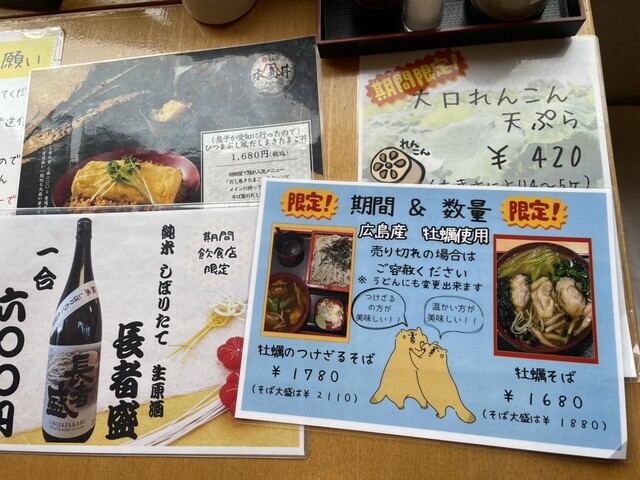 願い
(息子が愛知に行ったので)
ひつまぶし風だしまきたまご丼
1,680円(税込)
期間限定!
大口れんこん
天ぷら
れんこん
¥420
純米 しぼりたて 生原酒
長者盛
期間
飲食店
限定
一合
六〇〇円
長者盛
CHOJAZAKARI
限定!
期間 & 数量
限定!
広島産 牡蠣使用
売り切れの場合は
ご容赦ください
※うどんにも変更出来ます
つけざる
の方が
美味しい!!
温かい方が
美味しい!!
牡蠣のつけざるそば
¥1780
(そば大盛は¥2110)
牡蠣そば
¥1680
(そば大盛は¥1880)